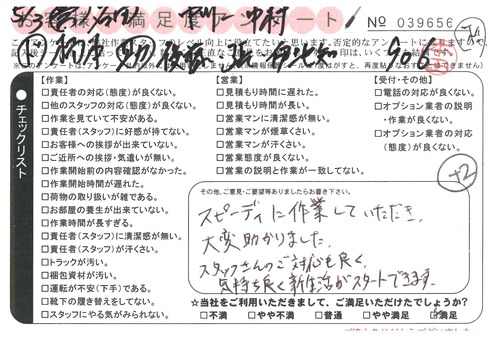 お客様満足度アンケート
No 039656
チェックリスト
【作業】
□責任者の対応(態度)が良くない。
□他のスタッフの対応(態度)が良くない。
□作業を見ていて不安がある。
□責任者(スタッフ)に好感が持てない。
□お客様への挨拶が出来ていない。
□ご近所への挨拶・気遣いが無い。
□作業開始前の内容確認がなかった。
□作業開始時間が遅れた。
□荷物の取り扱いが雑である。
□お部屋の養生が出来ていない。
□作業時間が長すぎる。
□責任者(スタッフ)に清潔感が無い。
□責任者(スタッフ)が汗くさい。
□トラックが汚い。
□梱包資材が汚い。
□運転が不安(下手)である。
□靴下の履き替えをしてない。
□スタッフにやる気がみられない。
【営業】
□見積もり時間に遅れた。
□見積もり時間が長い。
□営業マンに清潔感が無い。
□営業マンが煙草くさい。
□営業マンが汗くさい。
□営業態度が良くない。
□営業の説明と作業が一致してない。
【受付・その他】
□電話の対応が良くない。
□オプション業者の説明
・作業が良くない。
□オプション業者の対応
(態度)が良くない。
+2
その他、ご意見・ご要望等ありましたらお書き下さい。
スピーディに作業していただき、
大変助かりました。
スタッフさんのご対応も良く、
気持ち良く新生活がスタートできます。
☆当社をご利用いただきまして、ご満足いただけたでしょうか?
□不満 □やや不満 □普通 □やや満足 □満足